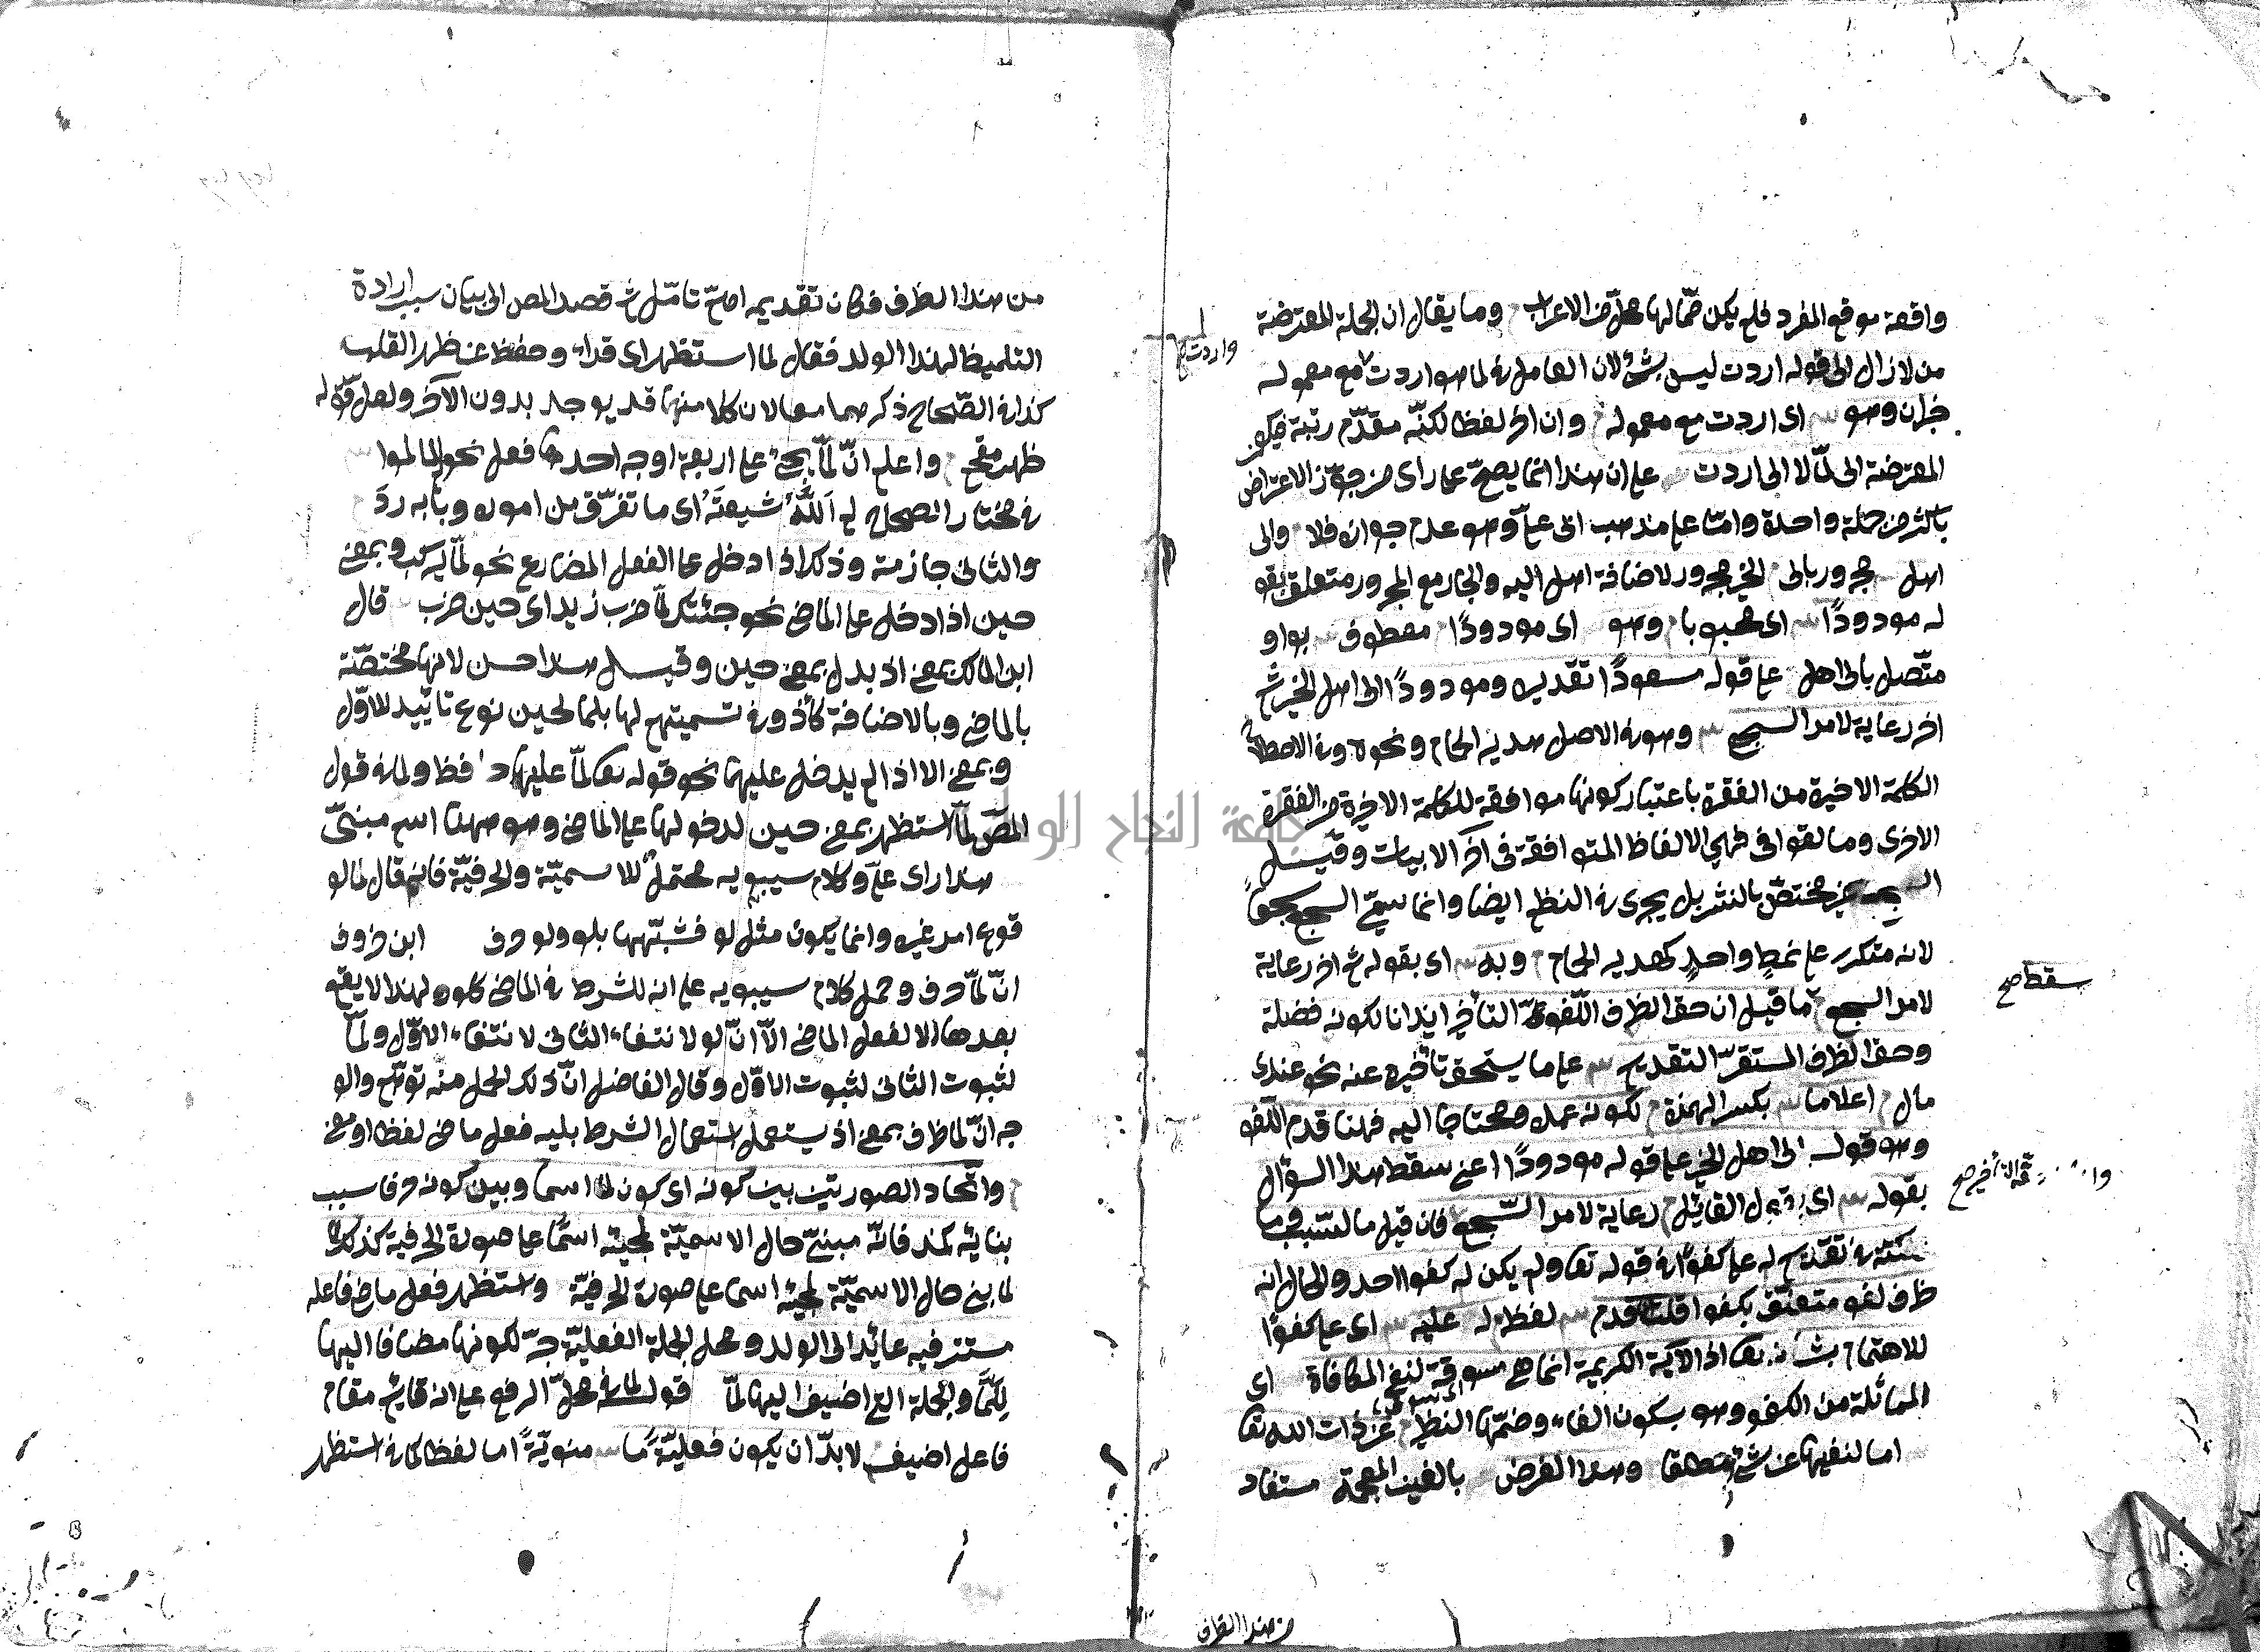 واقعة موقع المفرد فلم يكن ممّا لها محلّ من الاعراب وما يقال ان الجملة المعترضة
من لازال الى قوله اردت ليس بشئ لان العامل في لما هو اردت مع معموله
وهو اى اردت مع معموله وان اخر لفظا لكنّه مقدّم رتبة فيكون
المعترضة الى لمّا لا الى اردت على ان هذا انما يصحّ على راى من جوّز الاعتراض
باكثر من جملة واحدة وامّا على مذهب ابى علىّ وهو عدم جوازه فلا والى
اهل مجرور بالى الخير مجرور لاضافة اهل اليه والجار مع المجرور متعلق بقو
له مودودًا اى محبوبا وهو اى مودودًا معطوف بواو
متّصل بالى اهل على قوله مسعودًا تقديره ومودودًا الى اهل الخير ثم
اخر رعاية لامر السجع وهو في الاصل هدير الحمام ونحوه وفى الاصطلاح
الكلمة الاخيرة من الفقرة باعتبار كونها موافقة للكلمة الاخيرة من الفقرة
الاخرى وما لقوافى فهى الالفاظ المتوافقة فى اخر الابيات وقيل
السجع غير مختصّ بالنثر بل يجرى فى النظم ايضا وانما سمّى السجع سجعًا
لانه متكرر على نمطٍ واحدٍ كهدير الحمام وبه اى بقوله ثم اخر رعاية
لامر السجع ما قيل ان حق الظرف اللّغو التأخير ايذانا لكونه فضلة
وحق الظرف المستقرّ التقديم على ما يستحق تأخيره عنه نحو عندى
مال اعلاما بكسر الهمزة لكونه عمدة ومحتاجا اليه فهنا قدم اللّغو
وهو قوله الى اهل الخير على قوله مودودًا اعنى سقط هذا السؤال
بقوله اى بقول القائل رعاية لامر السّجع فان قيل ما السّبب وما
نكتة في تقديم له على كفوًا في قوله تعا ولم يكن له كفوا احد والحال انه
ظرف لغو متعلّق بكفوا قلت قدم لفظ له عليه اى على كفوًا
للاهتمام بشأنه تعا اذ الآية الكريمة انما هى مسوقة لنفى المكافاة اى
المماثلة من الكفو وهو بسكون الفاء وضمّها النظير عن ذات الله تعا
اما لنفيها عن شئ مطلقا وهذا الغرض بالغين المعجمة مستفاد
من هذا الظرف
واردت صح
سقط صح
من هذا الظرف فكان تقديمه اهمّ تامّل ثم قصد المص الى بيان سبب ارادة
التلميظ لهذا الولد فقال لما استظهر اى قراء وحفظ عن ظهر القلب
كذا فى الصّحاح ذكرهما معا لان كلا منهما قد يوجد بدون الآخر ولعل قوله
ظهر مقحم واعلم انّ لمّا يجئ على اربعة اوجه احدها فعل نحو لما لموا
فى مختار الصحاح لم اللّه شيعثه اى ما تفرّق من اموره وبابه ردّ
والثانى جازمة وذلك اذا دخل على الفعل المضارع نحو لمّا يركب وبمعنى
حين اذا دخل على الماضى نحو جئتك لمّا ضرب زيد اى حين ضرب قال
ابن المالك بمعنى اذ بدل بمعنى حين وقيل هذا احسن لانها مختصّة
بالماضى وبالاضافة كأذ وفى تسميتهم لها بلما لحين نوع تاييد للاوّل
وبمعنى الا اذا لم يدخل عليهما نحو قوله تعا لمّا عليها حافظ ولما فى قول
المصّ لمّا استظهر بمعنى حين لدخولها على الماضى وهو ههنا اسم مبنىّ
هذا راى علىّ وكلام سيبويه محتمل للاسميّة والحرفيّة فانه قال لما لو
قوع امر غيره وانما يكون مثل لو فشبّهها بلو ولو حرف ابن خروف
انّ لمّا حرف وحمل كلام سيبويه على انه للشرط فى الماضى كلو ولهذا لا يقع
بعدها الا لفعل الماضى الآ انّ لو لانتفاء الثانى لانتفاء الاوّل ولمّا
لثبوت الثانى لثبوت الاوّل وقال الفاضل انّ ذلك الحمل منه توهّم والو
جه انّ لما ظرف بمعنى اذ يستعمل استعمال الشرط يليه فعل ماض لفظا او معنى
واتّحاد الصورتين بين كونه اى كون لما اسما وبين كونه حرفا سبب
بنائه كمذ فانّه مبنىّ حال الاسميّة لمجيئه اسمًا على صورة الحرفية كذلك
لما بنى حال الاسميّة لمجيئه اسما على صورة الحرفيّة واستظهر فعل ماض فاعله
مستتر فيه عائد الى الولد ومحل الجملة الفعليّة جرّ لكونها مضافا اليها
لِلمّا والجملة التى اضيف اليها لمّا قوله لما فى محلّ الرفع على انه قايم مقام
فاعل اضيف لا بدّ ان يكون فعليّة ما منويّةً اما لفظا كما فى استظهر
جامعة النجاح الوطنية